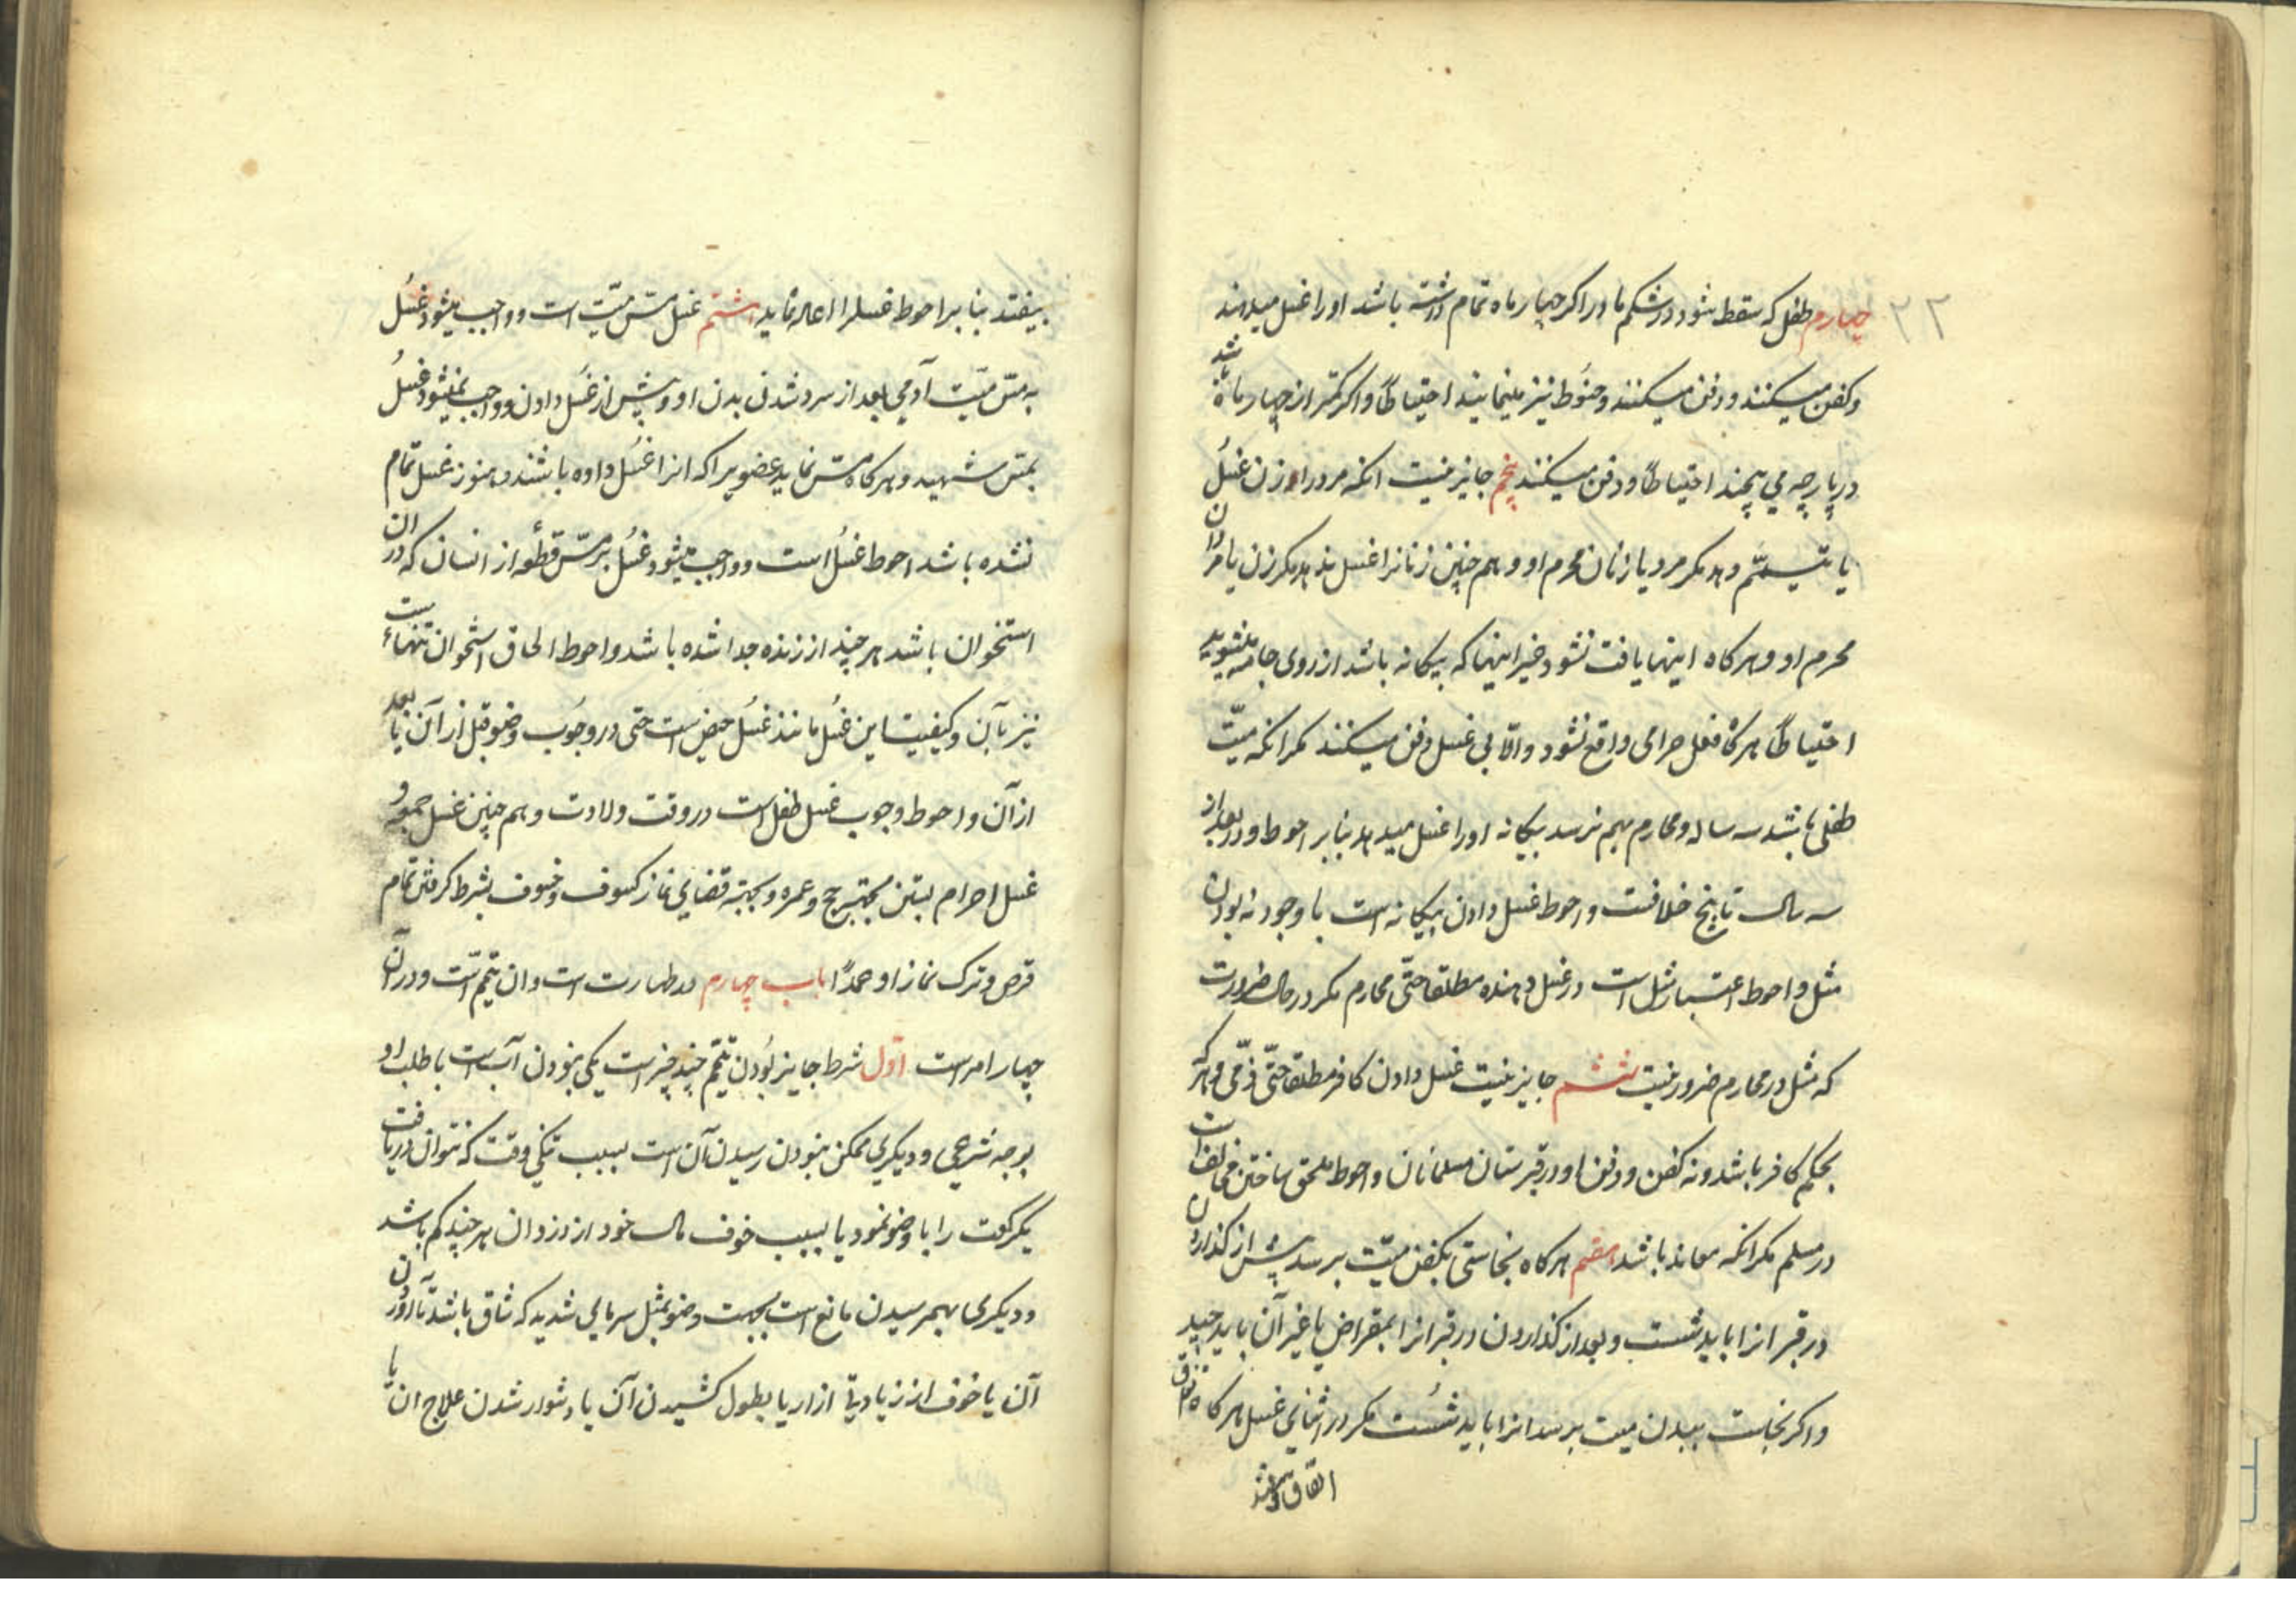 ۲۲
چهارم طفل که سقط شود در شکم مادر اکر چهار ماه تمام داشته باشد او را غسل میدهند
و کفن میکنند و دفن میکنند و حنوط نیز مینمایند احتیاطاً و اکر کمتر از چهار ماهه باشد
در پارچه می پیچند احتیاطاً و دفن میکنند پنجم جایز نیست انکه مرد را زن غسل
یا تیمّم دهد مکر مرد یا زنان محرم او و هم چنین زنانرا غسل ندهد مکر زن یا مردان
محرم او و هرکاه اینها یافت نشود غیر اینها که بیکانه باشد از روی جامه میشوید
احتیاطاً هرکاه فعل حرامی واقع نشود و الّا بی غسل دفن میکنند مکر انکه میّت
طفلی باشد سه ساله و محارم بهم نرسد بیکانه او را غسل میدهد بنابر احوط و در بعد از
سه سال تا پنج خلافست و احوط غسل دادن بیکانه است با وجود نه بودن
مثل و احوط اعتبار مثل است در غسل دهنده مطلقا حتّی محارم مکر در حال ضرورت
که مثل در محارم ضرور نیست ششم جایز نیست غسل دادن کافر مطلقا حتّی ذمّی و هر که
بحکم کافر باشد و نه کفن و دفن او در قبرستان مسلمانان و احوط ملحق ساختن مخالف است
در مسلم مکر انکه معاند باشد هفتم هرکاه نجاستی بکفن میّت برسد پیش از کذاردن
در قبر انرا باید شست و بعد از کذاردن در قبر انرا بمقراض یا غیر آن باید چید
و اکر نجاست ببدن میت برسد انرا باید شُست مکر در اثنای غسل هرکاه
اتفاق
بیفتد بنا بر احوط غسلرا اعاده نماید هشتم غسل مسّ میّت است و واجب میشود غسل
به مسّ میّت آدمی بعد از سرد شدن بدن او و پیش از غسل دادن و واجب نمیشود غسل
بمسّ شهید و هرکاه مسّ نماید عضویرا که انرا غسل داده باشند و هنوز غسل تمام
نشده باشد احوط غسل است و واجب میشود غسل بر مسّ قطعه از انسان که در ان
استخوان باشد هر چند از زنده جدا شده باشد و احوط الحاق استخوان تنهاست
نیز بآن و کیفیت این غسل مانند غسل حیض است حتی در وجوب وضو قبل از آن یا بعد
از آن و احوط وجوب غسل طفل است در وقت ولادت و هم چنین غسل جمعه و
غسل احرام بستن بجهت حج و عمره و بجهة قضای نماز کسوف و خسوف بشرط کرفتن تمام
قرص و ترک نماز او عمداً باب چهارم در طهارت است و ان تیمّم است و در آن
چهار امر است اوّل شرط جایز بُودن تیمّم چند چیز است یکی نبودن آب است با طلب او
بوجه شرعی و دیکری ممکن نبودن رسیدن آن است بسبب تنکی وقت که نتوان دریافت
یکرکعت را با وضو نمود یا بسبب خوف مال خود از دزدان هر چند کم باشد
و دیکری بهمرسیدن مانع است بجهت وضو مثل سرمای شدید که شاق باشد تاب آوردن
آن یا خوف از زیادتی ازار یا بطول کشیدن آن یا دشوار شدن علاج ان یا